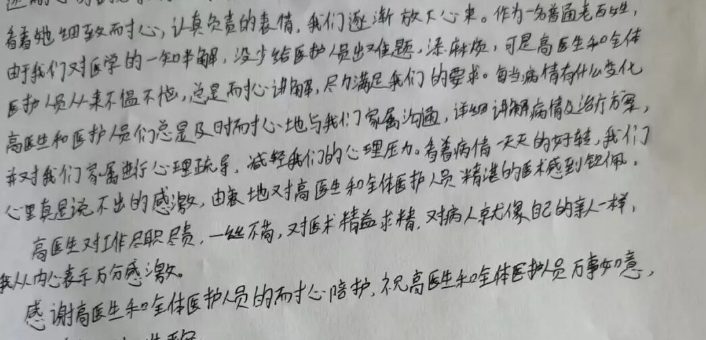 看着她细致而耐心,认真负责的表情,我们逐渐放下心来。作为一名普通老百姓,
由于我们对医学的一知半解,没少给医护人员出难题,添麻烦,可是高医生和全体
医护人员从来不愠不恼,总是耐心讲解,尽力满足我们的要求。每当病情有什么变化
高医生和医护人员们总是及时耐心地与我们家属沟通,详细讲解病情及治疗方案,
并对我们家属进行心理疏导,减轻我们的心理压力。看着病情一天天的好转,我们
心里真是说不出的感激,由衷地对高医生和全体医护人员精湛的医术感到钦佩。
高医生对工作尽职尽责,一丝不苟,对医术精益求精,对病人就像自己的亲人一样,
我从内心表示万分感激。
感谢高医生和全体医护人员的耐心陪护,祝高医生和全体医护人员万事如意,